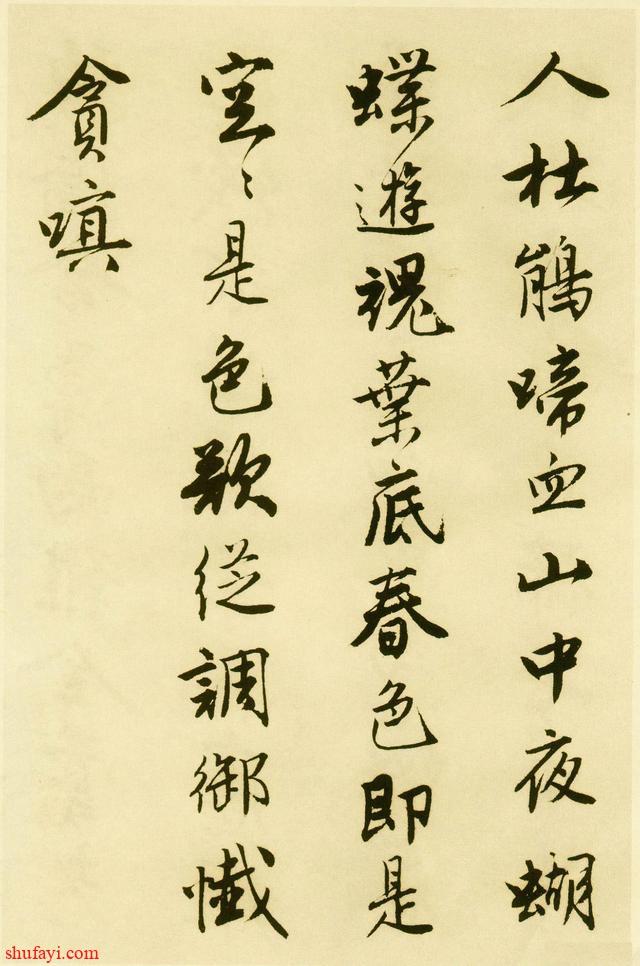 人杜鵑啼血山中夜蝴
蝶遊魂葉底春色即是
空〻是色欲從調御懺
貪嗔
shufayi.com